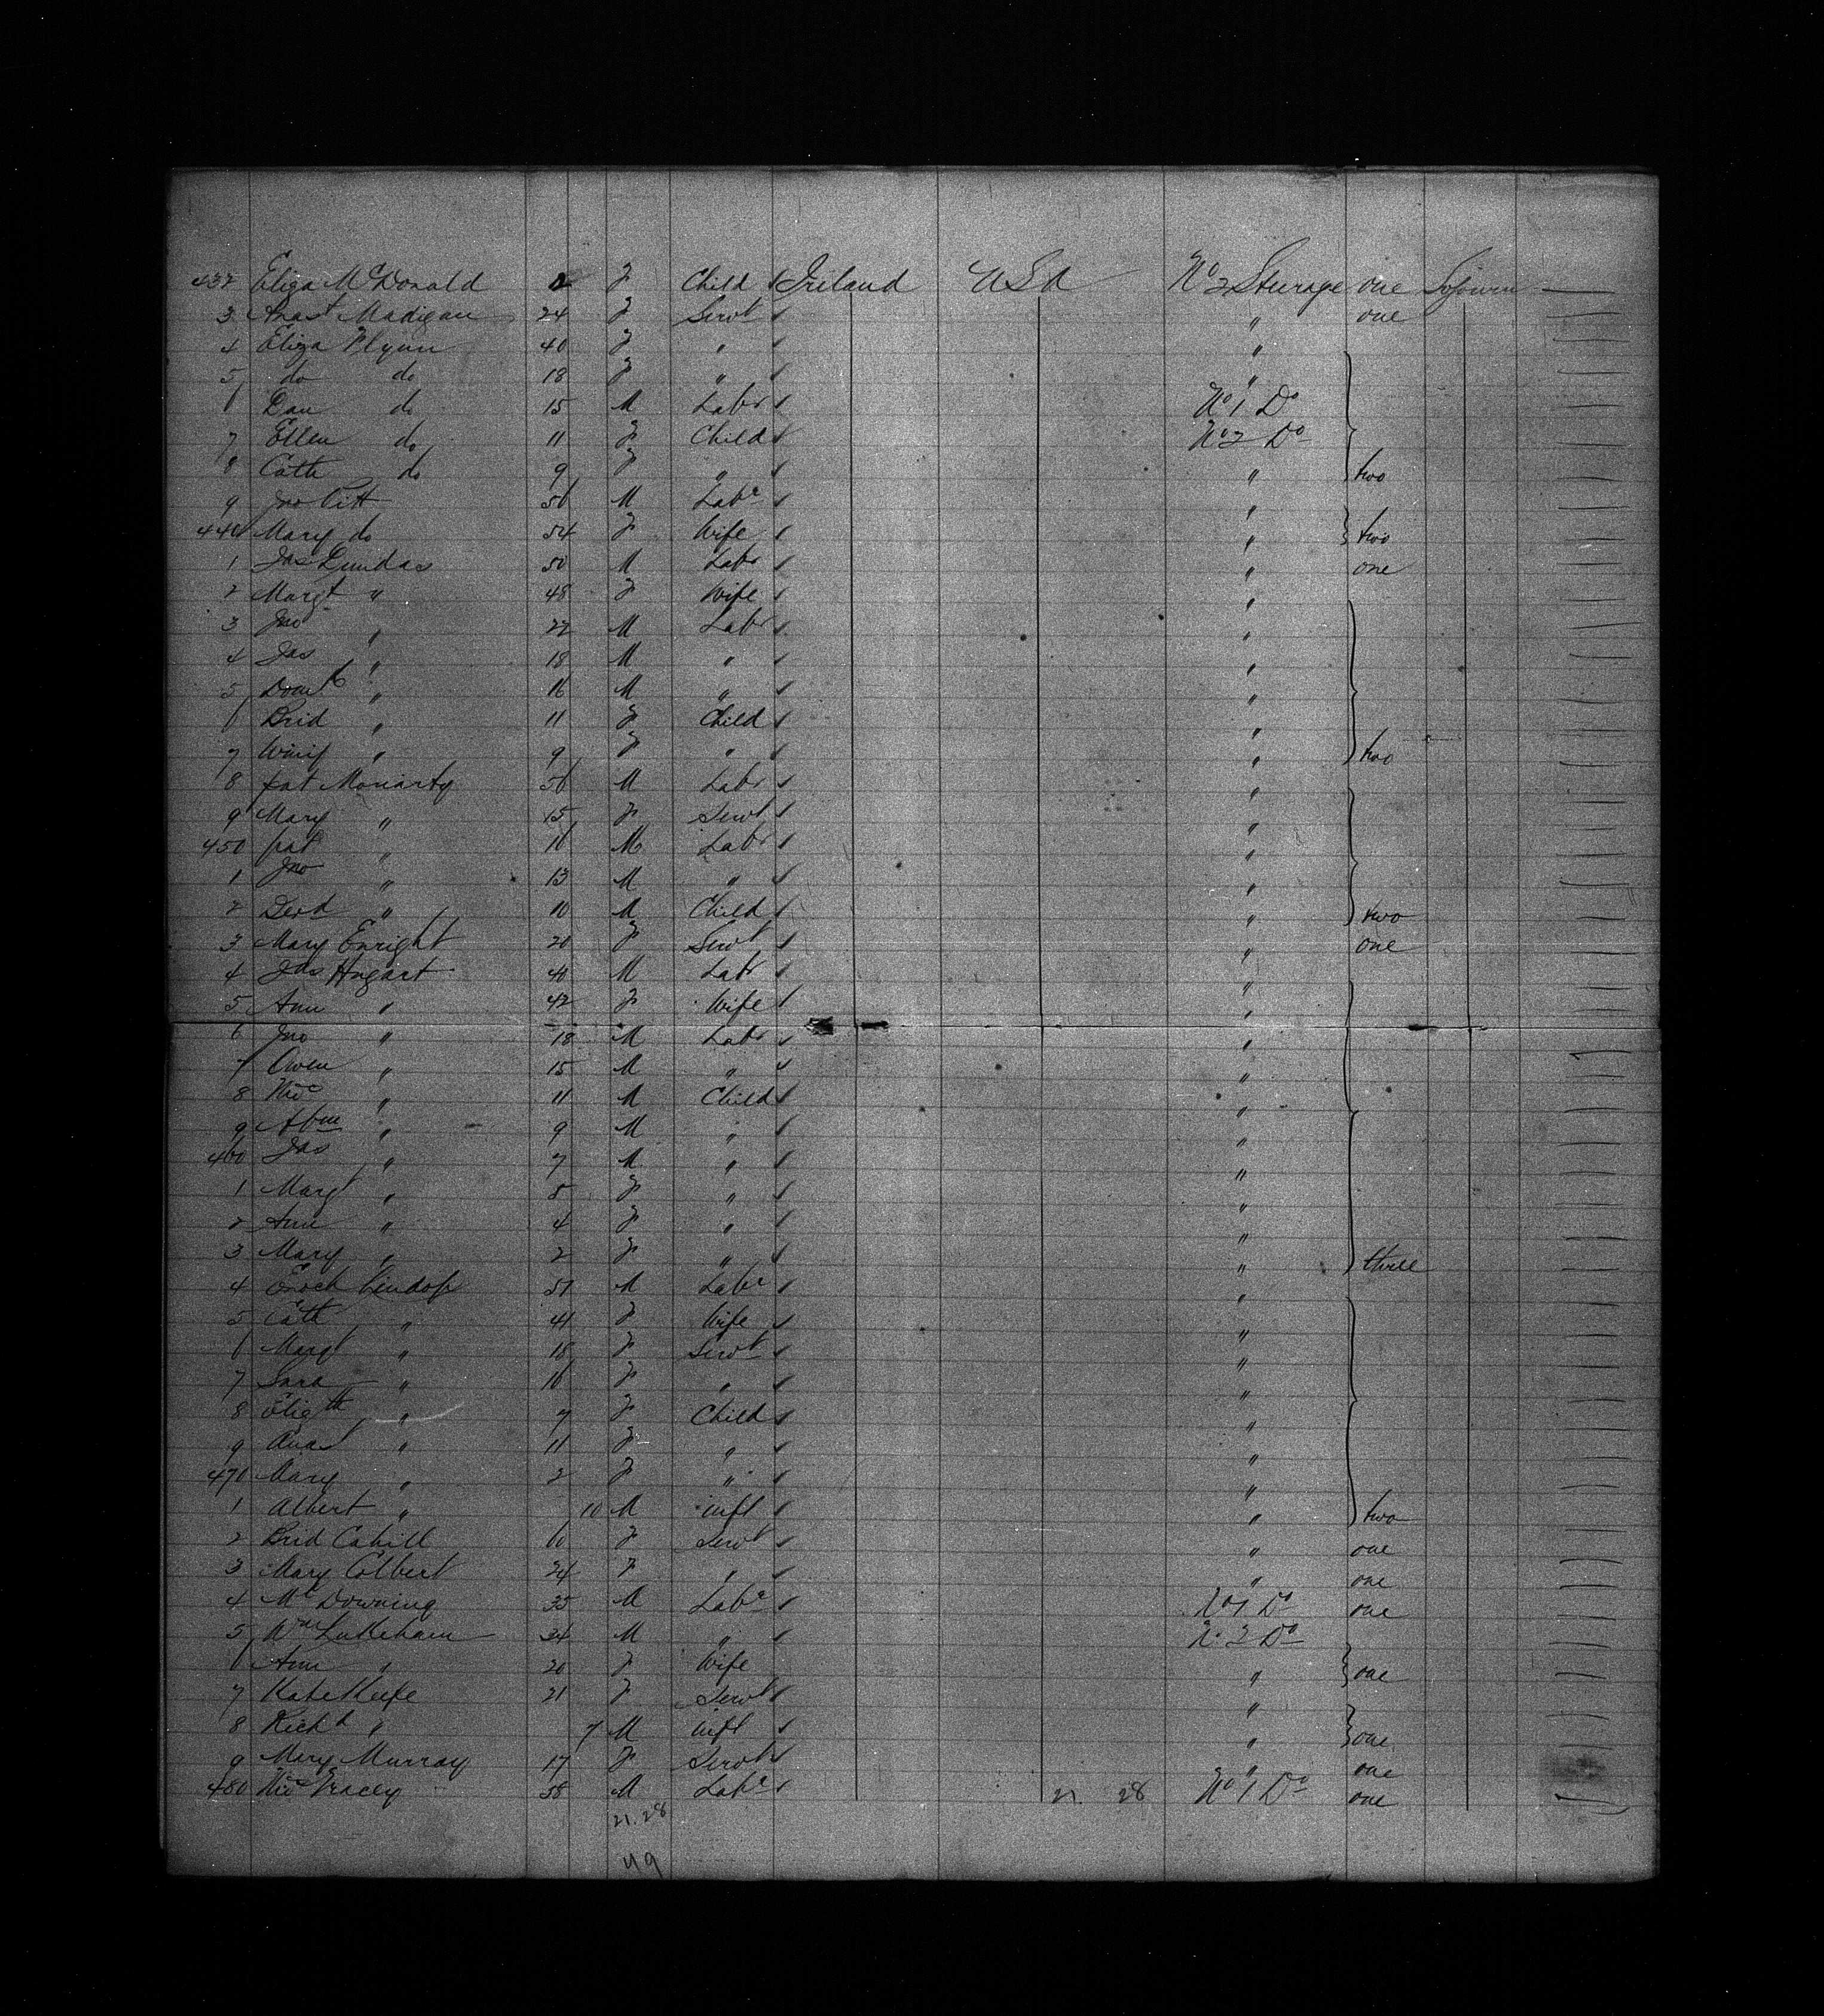 432 Eliza McDonald 2 F Child Ireland USA No 2 Sturage one Sojourn
3 Anast Madigan 24 F Servt " one
4 Eliza Flynn 40 F " "
5 do do 18 F " "
6 Dan do 15 M Labr No 1 Do
7 Ellen do 11 F Child No 2 Do
8 Cath do 9 F " " two
9 Jno Pitt 56 M Labr "
440 Mary do 54 F Wife " two
1 Jas Dundas 50 M Labr " one
2 Margt " 48 F Wife "
3 Jno " 22 M Labr "
4 Jas " 18 M " "
5 Domk " 16 M " "
6 Brid " 11 F Child "
7 Winif " 9 F " " two
8 Pat Moriarty 56 M Labr "
9 Mary " 15 F Servt "
450 Pat " 16 M Labr "
1 Jno " 13 M " "
2 " 10 M Child " two
3 Mary Enright 20 F Servt " one
4 Jas Hogart 41 M Labr "
5 Ann " 42 F Wife "
6 Jno " 18 M Labr "
7 Owen " 15 M " "
8 Mic " 11 M Child "
9 Abm " 9 M " "
460 Jas " 7 M " "
1 Margt " 5 F " "
2 Ann " 4 F " "
3 Mary " 2 F " " three
4 Enoch 51 M Labr "
5 Cath " 41 F Wife "
6 Margt " 18 F Servt "
7 Sara " 16 F " "
8 Elizth " 7 F Child "
9 Anast " 11 F " "
470 Mary " 2 F " "
1 Albert " 10 M Inft " two
2 Brid Cahill 60 F Servt " one
3 Mary Colbert 24 F " " one
4 Mc Downing 35 M Labr No 1 Do one
5 Wm Lukeham 34 M " No 2 Do
6 Ann " 20 F Wife " one
7 Kate Keefe 21 F Servt "
8 Richd " 7 M Inft " one
9 Mary Murray 17 F Servt " one
480 Mic Tracey 38 M Labr 21. 28 No 1 Do one
21. 28
49